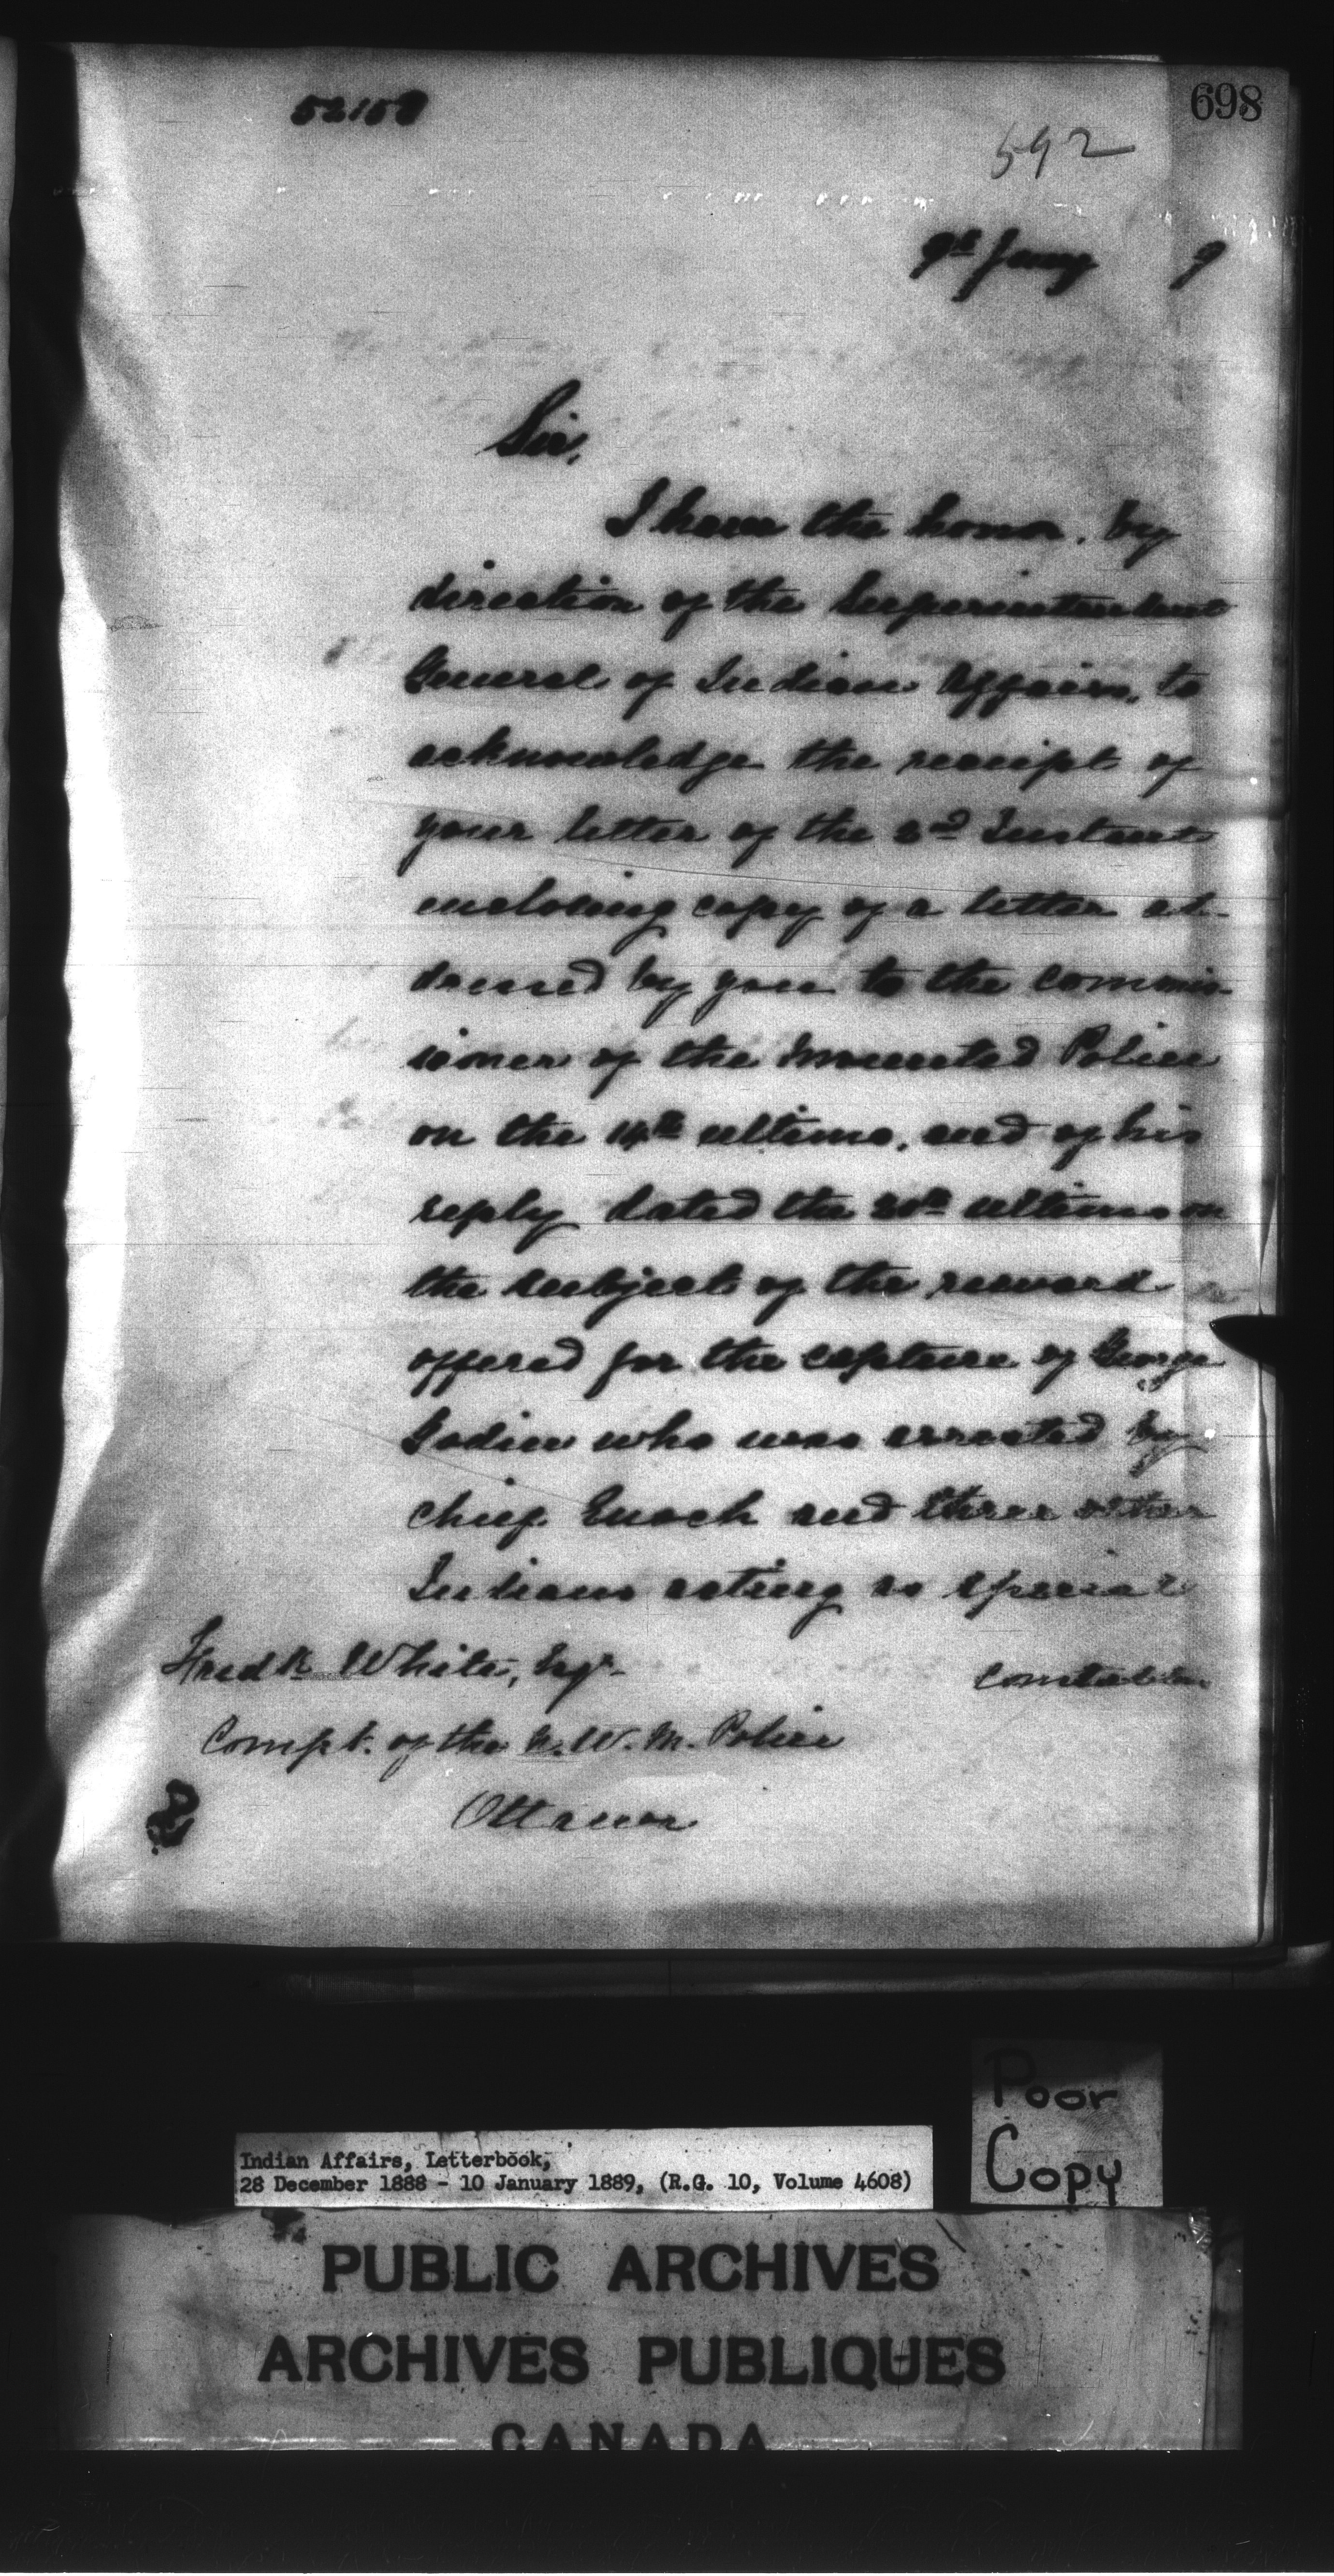 52158
698
592
9th Jany 9
Sir,
I have the honor, by
direction of the Superintendent
General of Indian Affairs, to
acknowledge the receipt of
your letter of the 2nd Instant
enclosing copy of a letter ad-
dressed by you to the commis-
sioner of the Mounted Police
on the 14th ultimo, and of his
reply dated the 20th ultimo on
the subject of the reward
offered for the capture of George
Godin who was arrested by
chief Enoch and three other
Indians acting as special
constables
Fredk White, Esqr.
Compt. of the N. W. M. Police
Ottawa
Poor
Copy
Indian Affairs, Letterbook,
28 December 1888 - 10 January 1889, (R.G. 10, Volume 4608)
PUBLIC ARCHIVES
ARCHIVES PUBLIQUES
CANADA